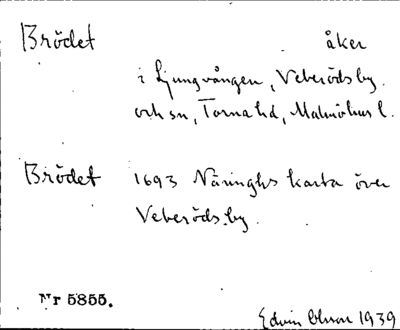 Brödet åker
i Ljungvången, Veberöds by
och sn, Torna hd, Malmöhus l.
Brödet 1693 Näringhs karta över
Veberöds by.
Nr 5855.
Edvin Ohlson 1939